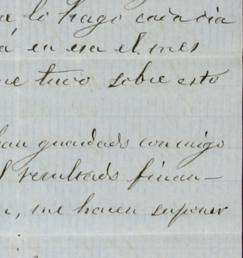 le hago cada dia
á en esa el mes
ue tuvo sobre esto
han guardado conmigo
l resultado finan-
n, me hacen suponer